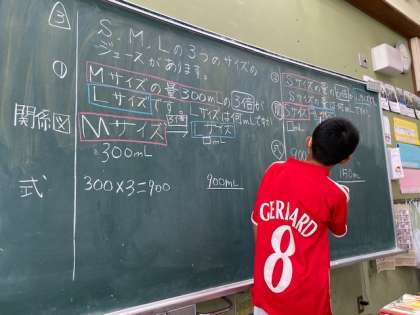 ③ S、M、Lの3つのサイズの
ジュースがあります。
① Mサイズの量300mLの3倍が
Lサイズです。Lサイズは何mLですか
関係図 Mサイズ 3倍 Lサイズ
300mL □mL
式 300×3=900
900mL
② Sサイズの量の6倍が
Sサイズの量は何mLですか
Sサイズ
□mL
式 900
150mL
GERRARD
8